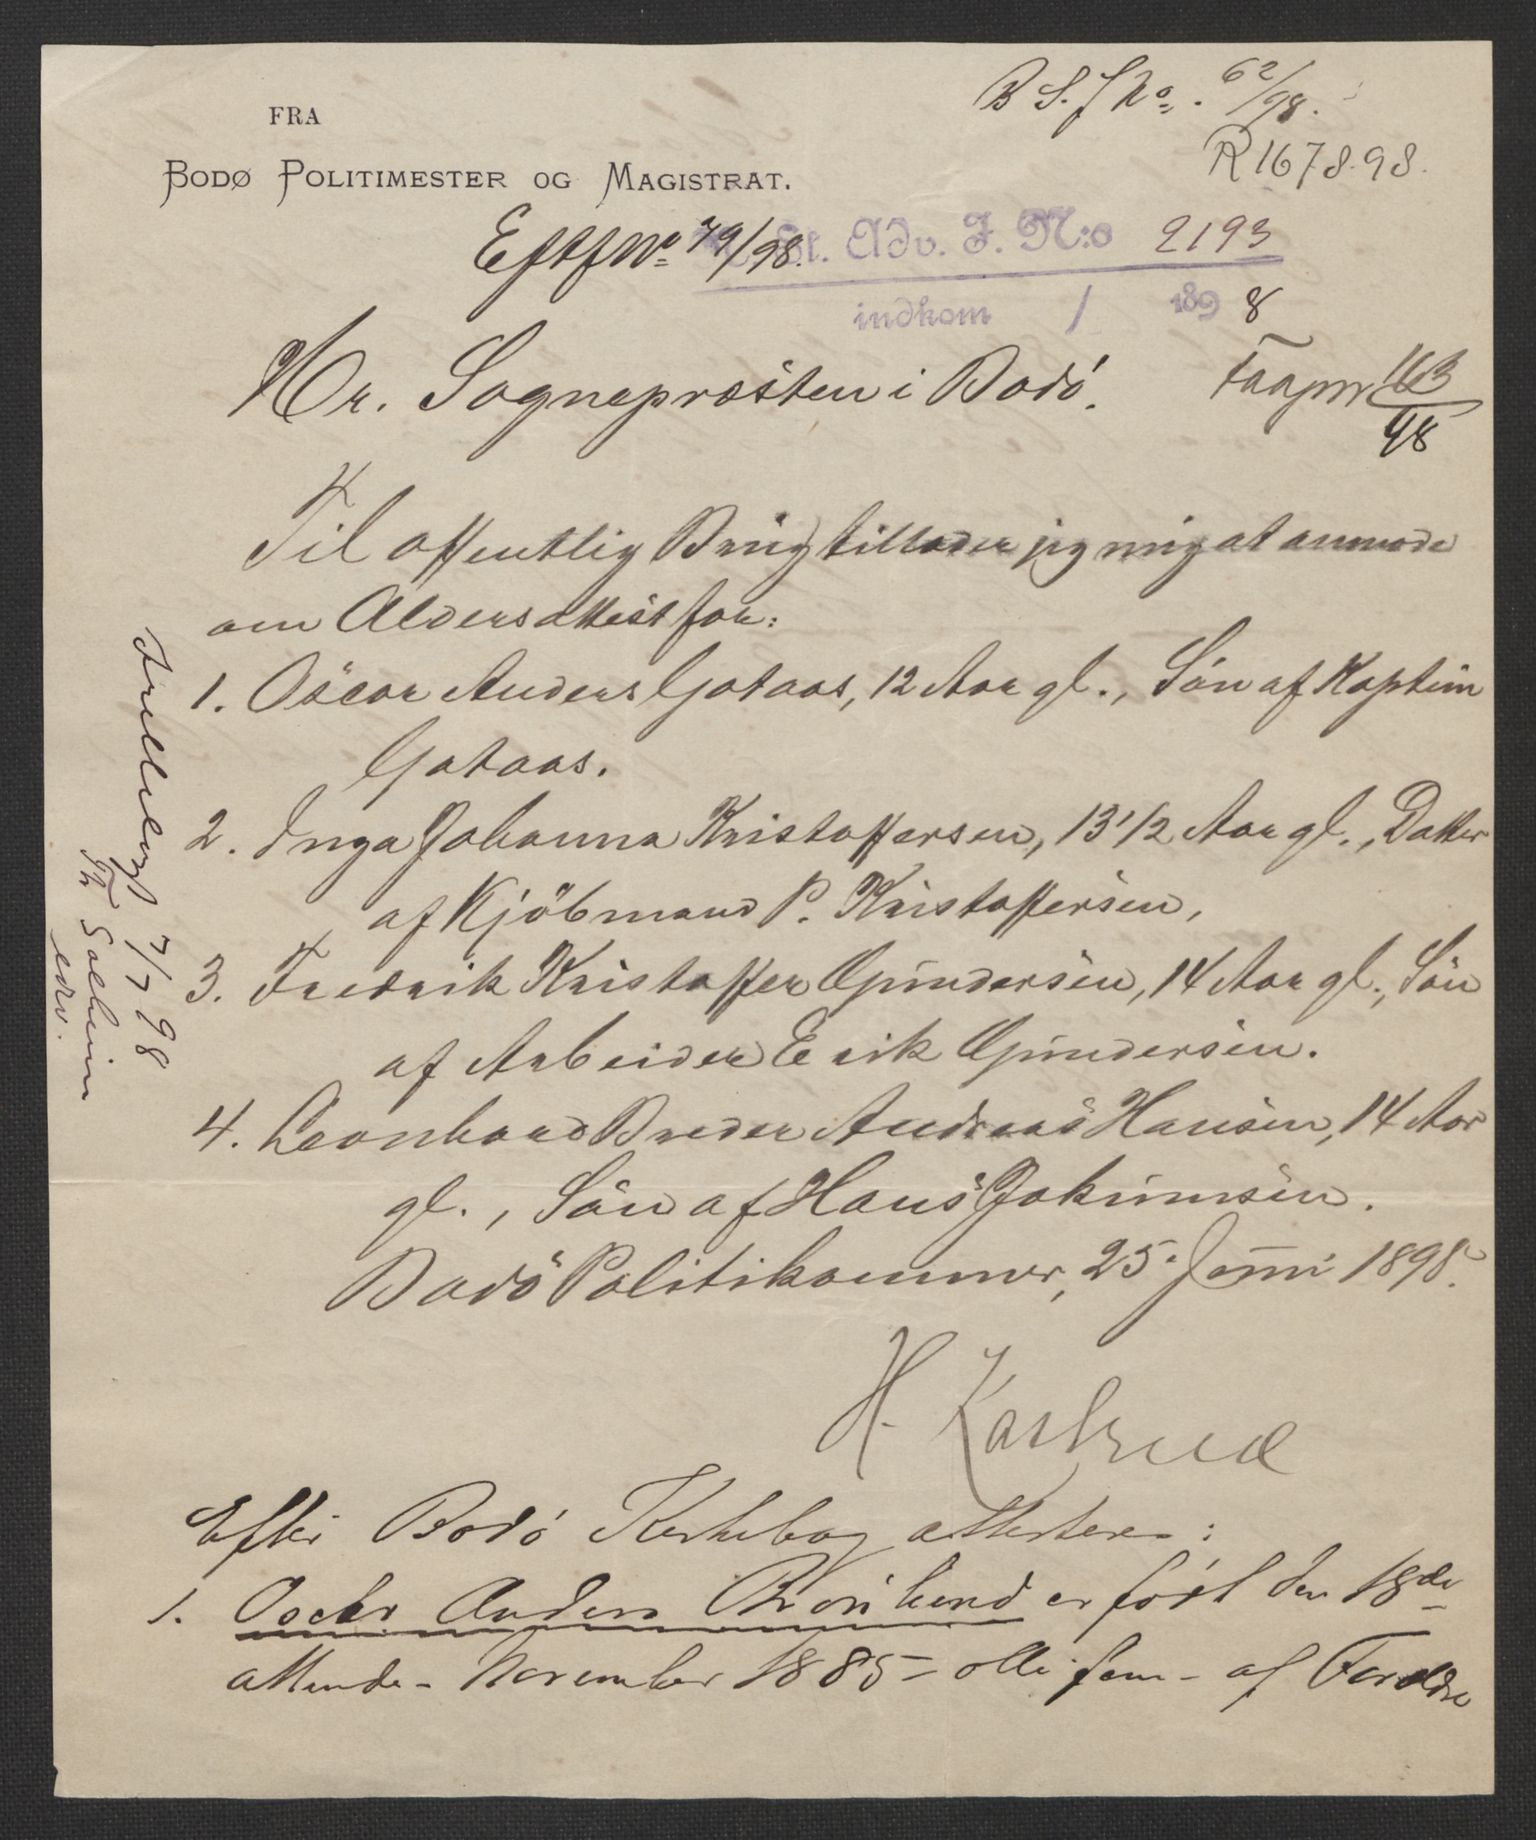 B S. J No. 62/98.
R 1678.98.
FRA
BODØ POLITIMESTER OG MAGISTRAT.
EftfNo 79/98.
St. Adv. J. N:o 2193
indkom / 1898
Hr. Sognepræsten i Bodö.
163
98
Til offentlig Brug tillader jeg mig at anmode
om Aldersattest for:
1. Oscar Anders Gotaas, 12 Aar gl., Sön af Kaptein
Gotaas.
2. Inga Johanna Kristoffersen, 13 1/2 Aar gl., Datter
af Kjöbmand P. Kristoffersen,
3. Fredrik Kristoffer Gundersen, 14 Aar gl., Sön
af Arbeider Erik Gundersen.
4. Leonhard Breder Andreas Hansen, 14 Aar
gl., Sön af Hans Jakimsen.
Bodö Politikammer, 25. Juni 1898.
H. Kastrud
Efter Bodö Kirkebog attesteres:
1. Oscar Anders er född den 18de
attende - November 1885 - otti fem - af Forældre
7/7 98